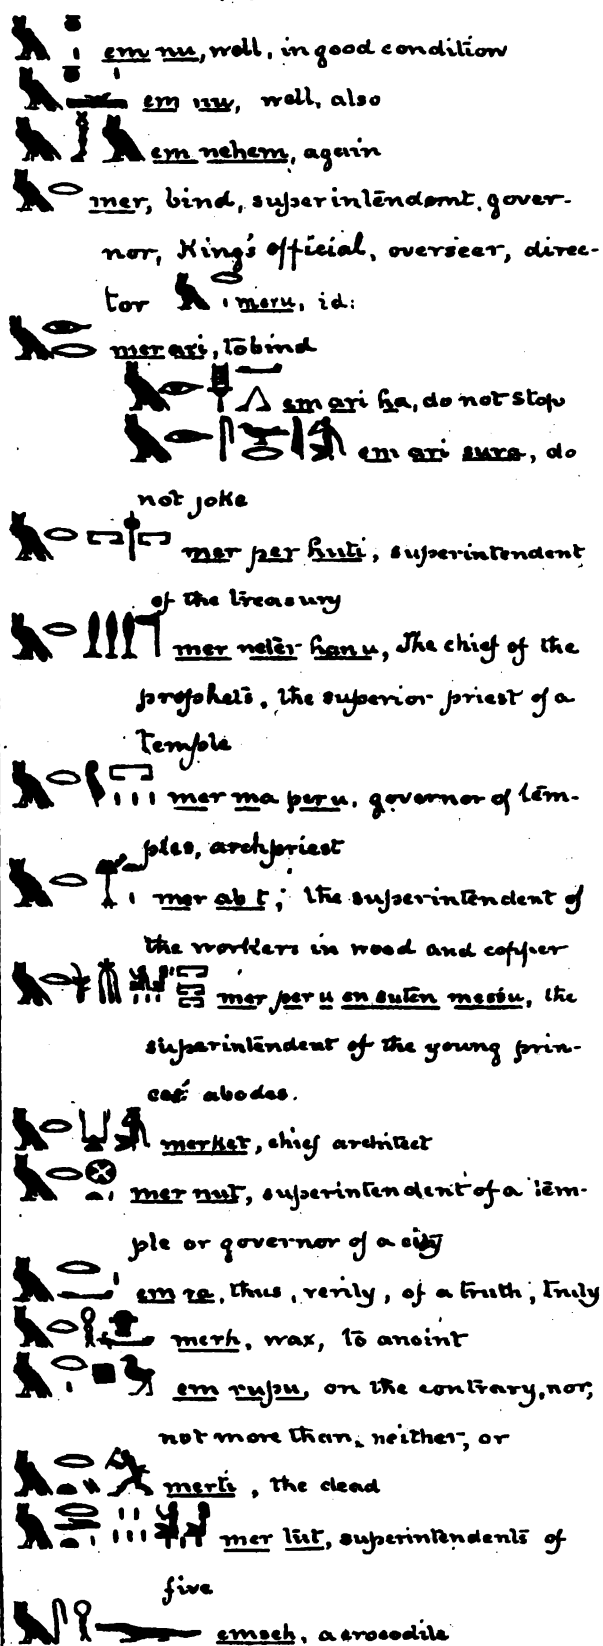 em nu, well, in good condition
em nu, well, also
em nehem, again
mer, bind, superintendent, gover-
nor, King's official, overseer, direc-
tor meru, id:
mer ari, to bind
em ari ha, do not stop
em ari sura, do
not joke
mer per huti, superintendent
of the treasury
mer neter hanu, The chief of the
prophets, the superior priest of a
temple
mer ma per u, governor of tem-
ples, archpriest
mer ab t; the superintendent of
the workers in wood and copper
mer per u en suten messu, the
superintendent of the young prin-
ces' abodes.
merket, chief architect
mer nut, superintendent of a tem-
ple or governor of a city
em ra, thus, verily, of a truth, truly
merh, wax, to anoint
em rupu, on the contrary, nor,
not more than, neither, or
merti, the dead
mer tut, superintendents of
five
emseh, a crocodile